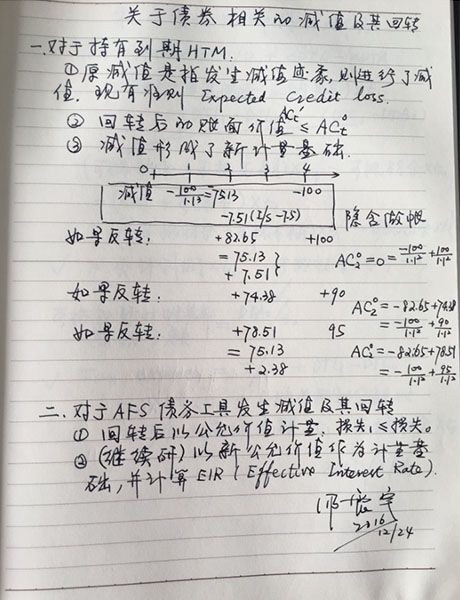 关于债券相关的减值及其回转
一.对于持有到期HTM.
①原减值是指发生减值迹象,则进行了减
值.现有准则 Expected credit loss.
②回转后的账面价值 AC't ≤ AC°t
③减值形成了新计量基础.
0 1 2 3 4
减值 -100/1.1³=75.13 -100
-7.51(I/S -7.5)
隐含做帐
如果反转: +82.65 +100
= 75.13
+ 7.51 }
AC°2=0=-100/1.1²+100/1.1²
如果反转: +74.38 +90
AC°2=-82.65+74.38
=-100/1.1²+90/1.1²
如果反转: +78.51 95
= 75.13
+2.38
AC°2=-82.65+78.51
=-100/1.1²+95/1.1²
二.对于AFS债券工具发生减值及其回转
①回转后以公允价值计量,损失≤损失。
②(继续研)以新公允价值作为计量基
础,并计算EIR(Effective Interest Rate).
2016
12/24